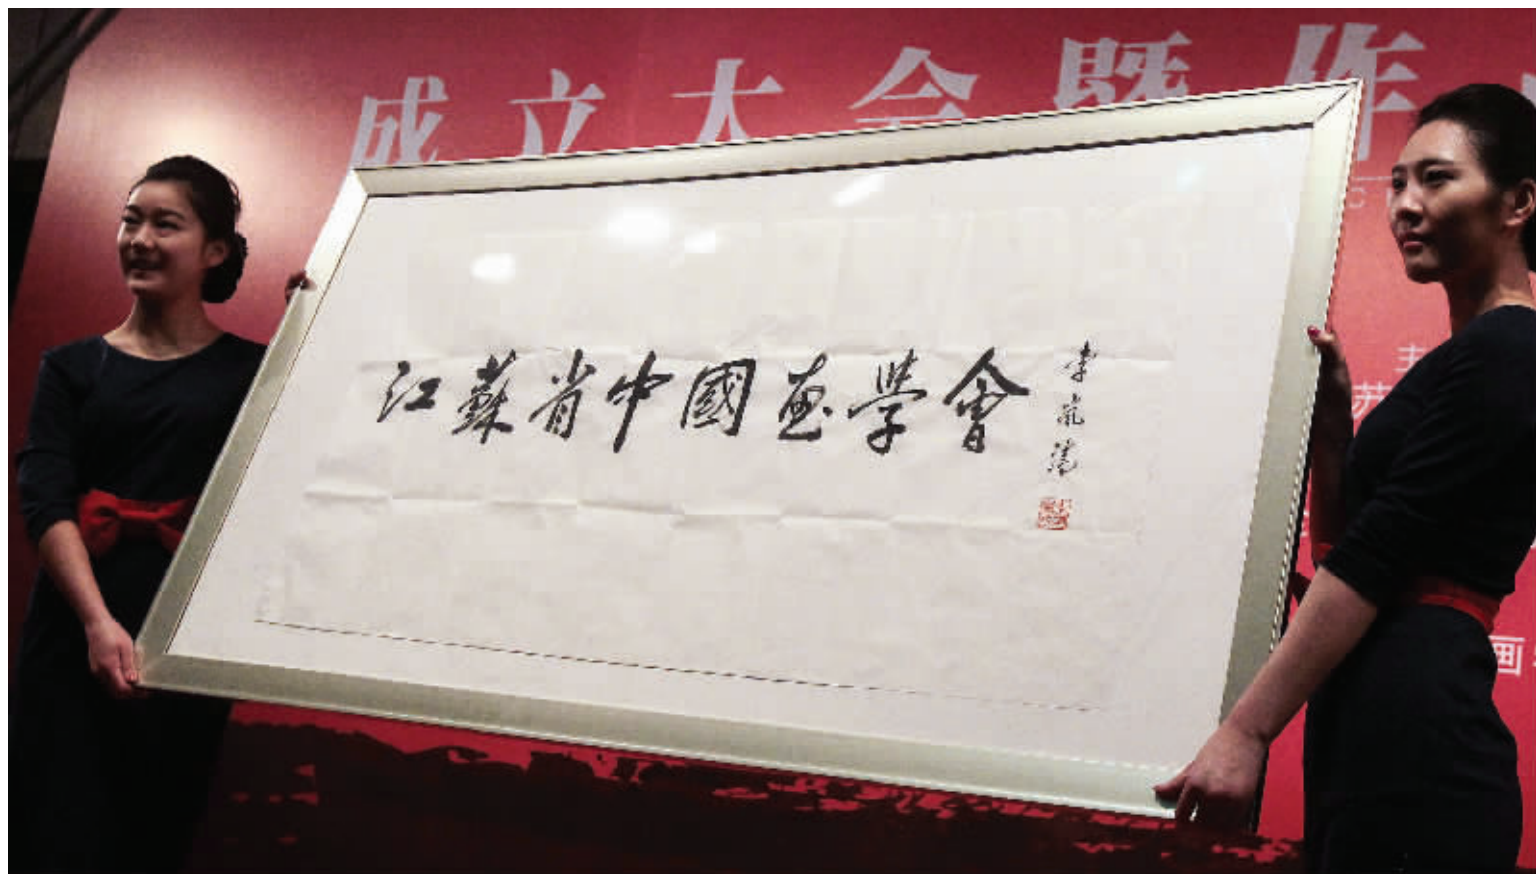 成立大会暨作
江蘇省中國画學會
李嵐清